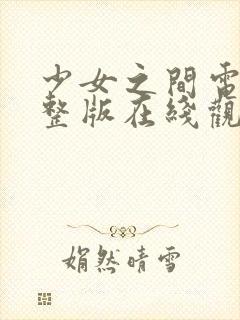 少女之間電
整版在綫觀
娟然晴雪